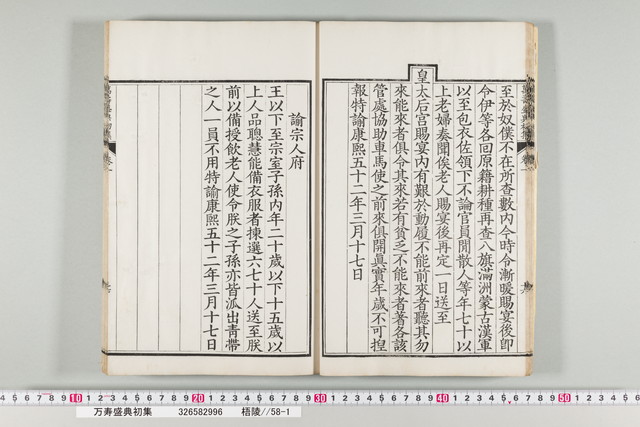 至於奴僕不在所查數內今時令漸暖賜宴後卽
令伊等各回原籍耕種再查八旗滿洲蒙古漢軍
以至包衣佐領下不論官員閒散人等年七十以
上老婦奏聞俟老人賜宴後再定一日送至
皇太后宮賜宴內有艱於動履不能前來者聽其勿
來能來者俱令其來若有貧乏不能來者著各該
管處協助車馬使之前來俱開眞實年歲不可揑
報特諭康熙五十二年三月十七日
諭宗人府
王以下至宗室子孫內年二十歲以下十五歲以
上人品聰慧能備衣服者揀選六七十人送至朕
前以備授飮老人使令朕之子孫亦皆派出青帶
之人一員不用特諭康熙五十二年三月十七日
万寿盛典初集 326582996 梧陵//58-1